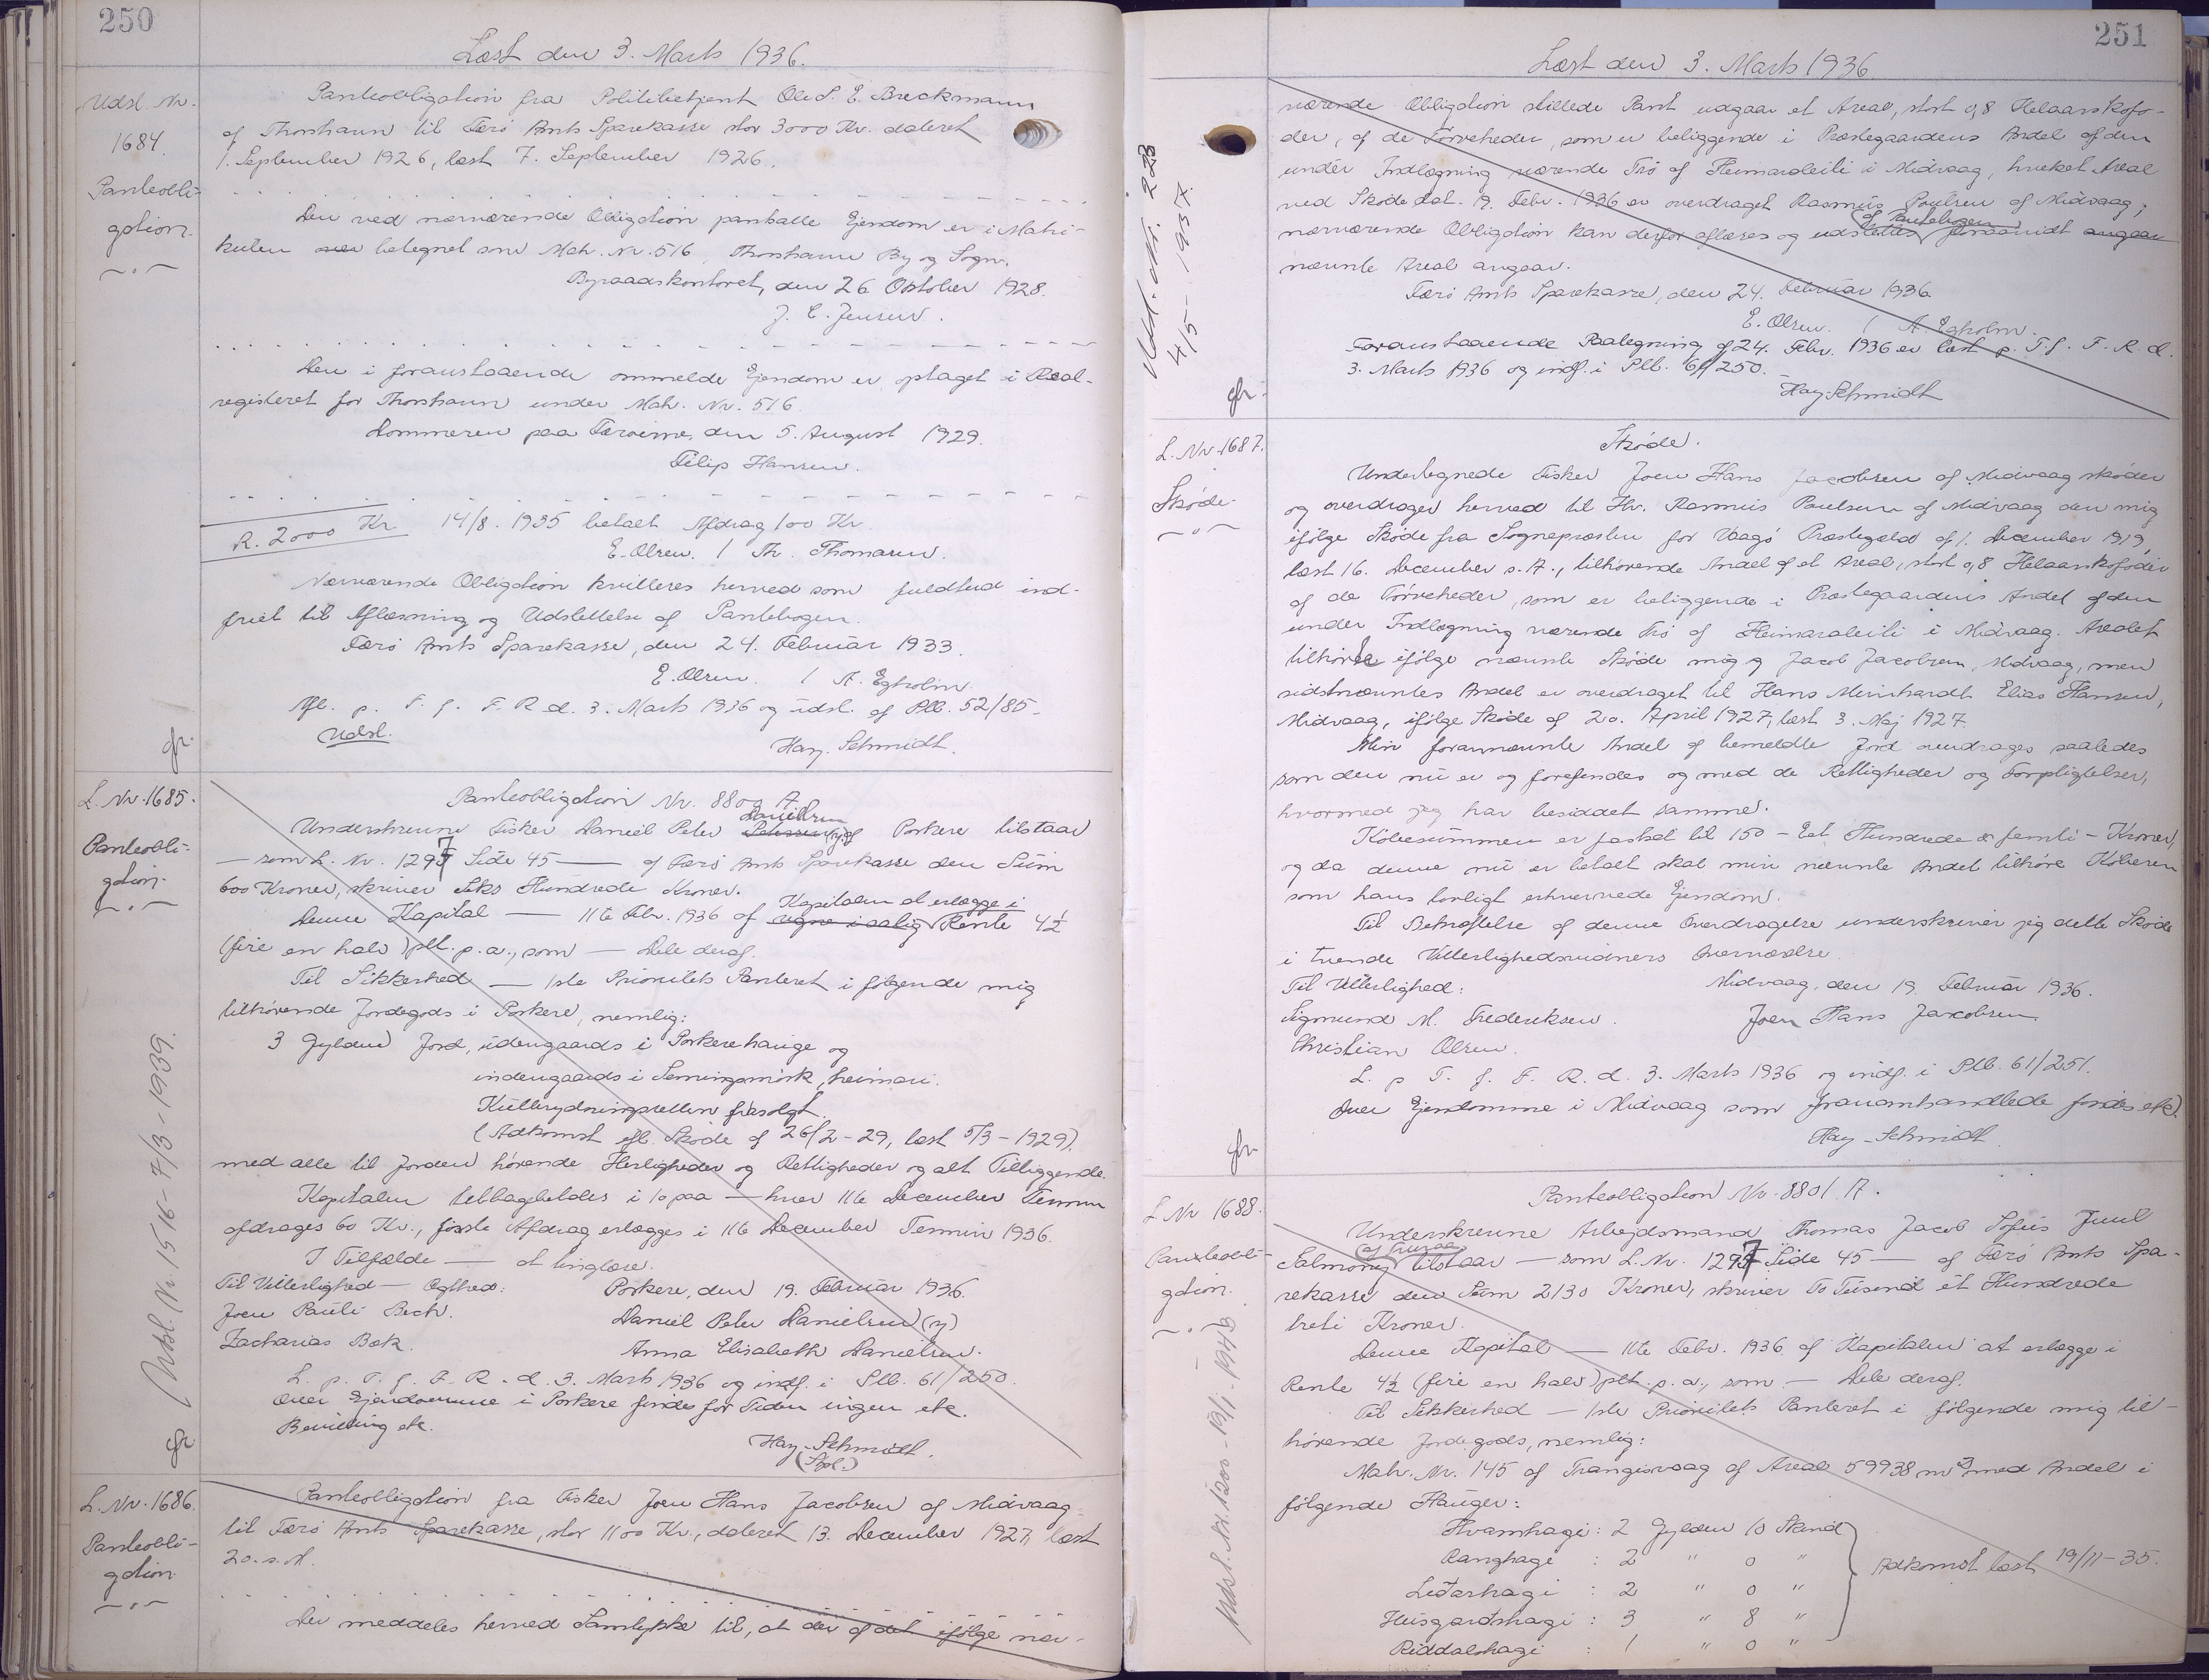 250
Læst den 3. Marts 1936.
Udsl. Nr.
1684.
Panteobli-
gation.
Panteobligation fra Politibetjent Ole S. E. Breckmann
af Thorshavn til Færø Amts Sparekasse stor 3000 Kr. dateret
1. September 1926, læst 7. September 1926.
Den ved nærværende Obligation pantsatte Ejendom er i Matri-
kulen betegnet som Matr. Nr. 516, Thorshavn By og Sogn.
Byraadskontoret, den 26 Oktober 1928.
J. C. Jensen.
Den i foranstaaende ommeldte Ejendom er optaget i Real-
registeret for Thorshavn under Matr. Nr. 516
Dommeren paa Færøerne, den 5. August 1929.
Filip Hansen.
R. 2000 Kr 14/8. 1935 betalt Afdrag 100 Kr.
E. Olsen. / Th. Thomasen.
Nærværende Obligation kvitteres herved som fuldtud ind-
friet til Aflæsning og Udslettelse af Pantebogen.
Færø Amts Sparekasse, den 24. Februar 1933.
E. Olsen. / A. Egholm.
Afl. p. T. f. F. R d. 3. Marts 1936 og udsl. af Plb. 52/85.
Udsl.
Hay-Schmidt.
L. Nr. 1685.
Panteobli-
gation.
Udsl. Nr. 1516 - 7/3 - 1939.
Panteobligation Nr. 8800 A.
Danielsen
Underskrevne Fisker Daniel Peter Petersen (y) af Porkere tilstaar
— som L. Nr. 1297 Side 45 — af Færø Amts Sparekasse den Sum
600 Kroner, skriver Seks Hundrede Kroner.
Kapitalen at erlægge i
Denne Kapital — 11te Febr. 1936 af Rente 4½
(fire en halv) pCt. p. a., som — Dele deraf.
Til Sikkerhed — 1ste Prioritets Panteret i følgende mig
tilhørende Jordegods i Porkere, nemlig:
3 Gylden Jord, udengaards i Porkerehauge og
indengaards i Semingsmørk, heimari.
Kultrydningsretten frasolgt.
(Adkomst ifl. Skøde af 26/2 - 29, læst 5/3 - 1929).
med alle til Jorden hørende Herligheder og Rettigheder og alt Tilliggende.
Kapitalen tilbagebetales i 10 paa — hver 11te December Termin
afdrages 60 Kr., første Afdrag erlægges i 11te December Termin 1936.
I Tilfælde — at tinglæse.
Til Vitterlighed — Ægthed: Porkere, den 19. Februar 1936.
Joen Pauli Bech. Daniel Peter Danielsen (y)
Zacharias Bæk. Anna Elisabeth Danielsen.
L. p. T. f. F. R. d. 3. Marts 1936 og indf. i Plb. 61/250.
Over Ejendomme i Porkere findes for Tiden ingen etc.
Bevilling etc.
Hay-Schmidt.
L. Nr. 1686.
Panteobli-
gation
Panteobligation fra Fisker Joen Hans Jacobsen af Midvaag
til Færø Amts Sparekasse, stor 1100 Kr., dateret 13. December 1927, læst
20. s. M.
Der meddeles herved Samtykke til, at der af det ifølge nær-
251
Læst den 3. Marts 1936
Udsl. Nr. 228
4/5 - 1937.
værende Obligation stillede Pant udgaar et Areal, stort 0,8 Helaarskofo-
der, af de Tørveheder, som er beliggende i Præstegaardens Andel af den
under Indlægning værende Trø af Heimaraleiti i Midvaag, hvilket Areal
ved Skøde dat. 19. Febr. 1936 er overdraget Rasmus Poulsen af Midvaag;
af Pantebogen
nærværende Obligation kan derfor aflæses og udslettes forsaavidt angaar
nævnte Areal angaar.
Færø Amts Sparekasse, den 24. Februar 1936.
E. Olsen. / A. Egholm.
Foranstaaende Paategning af 24. Febr. 1936 er læst p. T. f. F. R. d.
3. Marts 1936 og indf. i Plb. 61/250.
Hay-Schmidt
L. Nr. 1687.
Skøde.
Skøde.
Undertegnede Fisker Joen Hans Jacobsen af Midvaag skøder
og overdrager herved til Hr. Rasmus Poulsen af Midvaag den mig
ifølge Skøde fra Sognepræsten for Vaagø Præstegæld af 1. December 1919,
læst 16. December s. A., tilhørende Andel af et Areal, stort 0,8 Helaarskofoder
af de Tørveheder, som er beliggende i Præstegaardens Andel af den
under Indlægning værende Trø af Heimaraleiti i Midvaag. Arealet
tilhørte ifølge nævnte Skøde mig og Jacob Jacobsen, Midvaag, men
sidstnævntes Andel er overdraget til Hans Meinhardt Elias Hansen,
Midvaag, ifølge Skøde af 20. April 1927, læst 3. Maj 1927.
Min forannævnte Andel af bemeldte Jord overdrages saaledes
som den nu er og forefindes og med de Rettigheder og Forpligtelser,
hvormed jeg har besiddet samme.
Købesummen er fastsat til 150 - Eet Hundrede & femti - Kroner,
og da denne nu er betalt skal min nævnte Andel tilhøre Køberen
som hans lovligt erhvervede Ejendom.
Til Bekræftelse af denne Overdragelse underskriver jeg dette Skøde
i tvende Vitterlighedsvidners Overværelse.
Til Vitterlighed: Midvaag, den 19. Februar 1936.
Sigmund M. Frederiksen. Joen Hans Jacobsen.
Christian Olsen.
L. p. T. f. F. R. d. 3. Marts 1936 og indf. i Plb. 61/251.
Over Ejendomme i Midvaag som foranomhandlede findes etc.
Hay-Schmidt
L Nr 1688.
Panteobli-
gation.
Udsl. Nr. 1200 - 19/1 - 1943
Panteobligation Nr. 8801 A.
Underskrevne Arbejdsmand Thomas Jacob Sofus Juul
Salmony tilstaar — som L. Nr. 1297 Side 45 — af Færø Amts Spa-
rekasse den Sum 2130 Kroner, skriver To Tusend et Hundrede
treti Kroner.
Denne Kapital — 11te Febr. 1936 af Kapitalen at erlægge i
Rente 4½ (fire en halv) pCt. p. a., som — Dele deraf.
Til Sikkerhed — 1ste Prioritets Panteret i følgende mig til-
hørende Jordegods, nemlig:
Matr. Nr. 145 af Trangisvaag af Areal 59938 m² med Andel i
følgende Hauger:
Hvamhagi: 2 Gylden 10 Skind
Ranghagi : 2 " 0 "
Leðarhagi : 2 " 0 "
Húsgarðshagi : 3 " 8 "
Riddalshagi : 1 " 0 "
Adkomst læst 19/11 - 35.